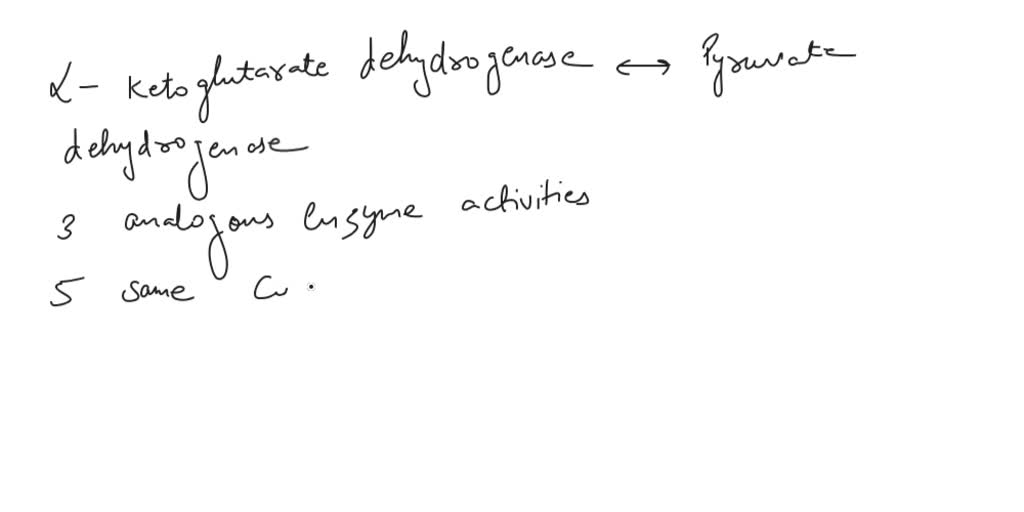 α- ketoglutarate dehydrogenase ↔ Pyruvate
dehydrogenase
3 analogous enzyme activities
5 same